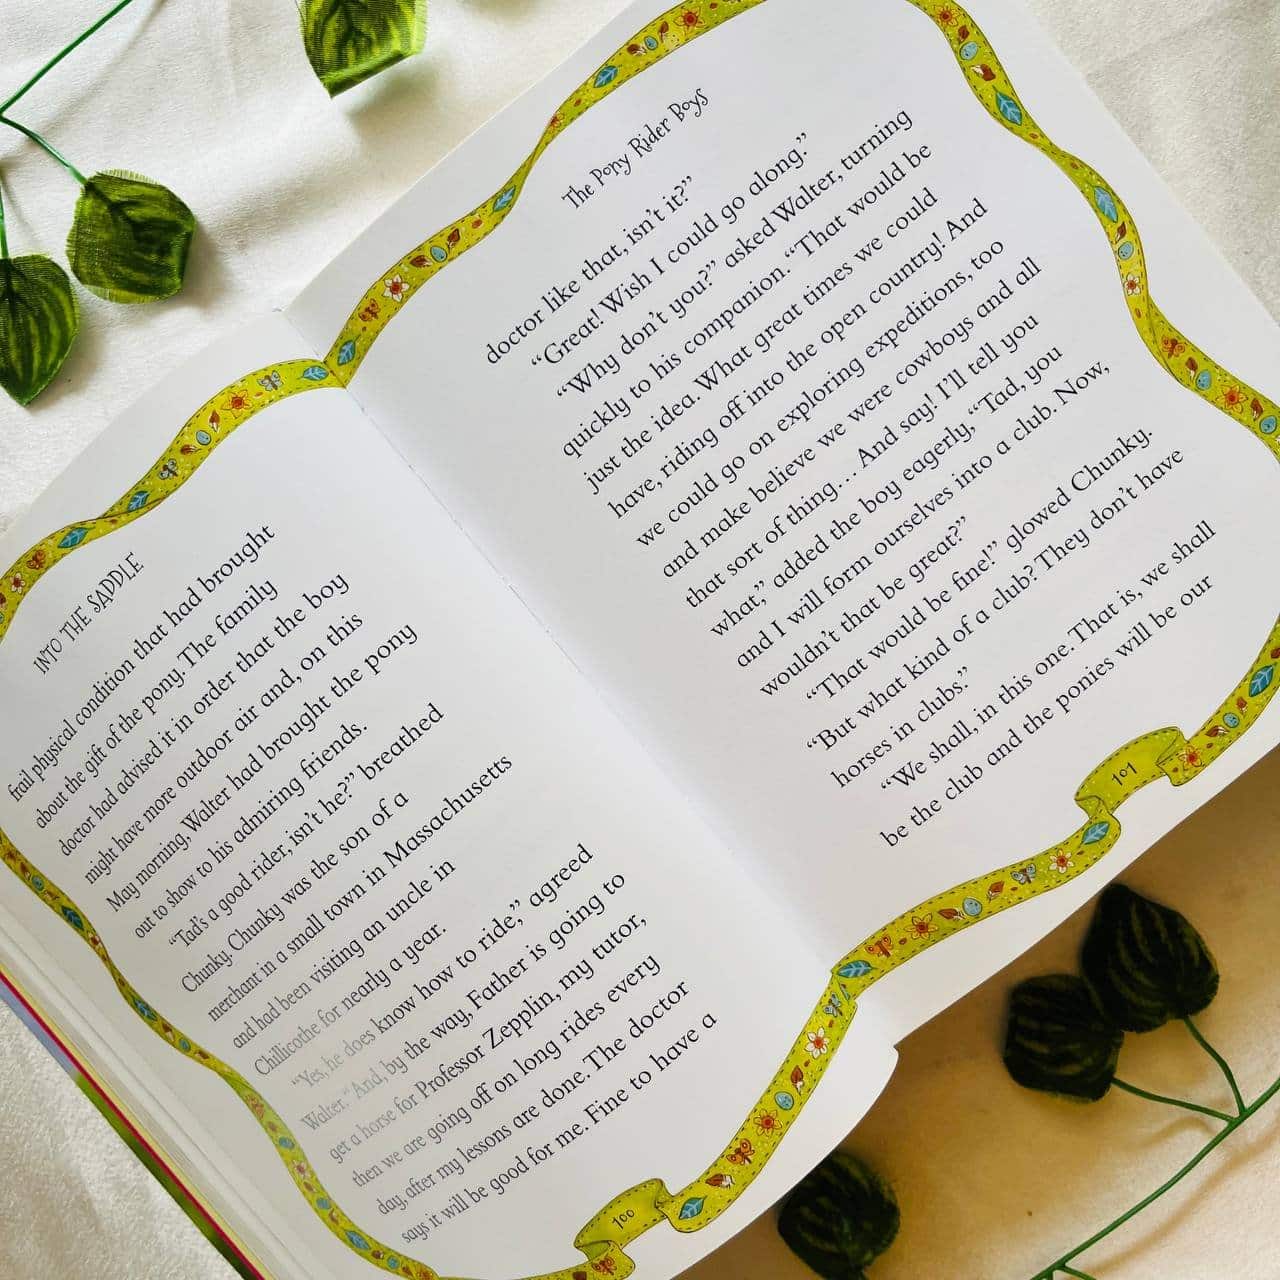 INTO THE SADDLE
frail physical condition that had brought
about the gift of the pony. The family
doctor had advised it in order that the boy
might have more outdoor air and, on this
May morning, Walter had brought the pony
out to show to his admiring friends.
“Tad’s a good rider, isn’t he?” breathed
Chunky. Chunky was the son of a
merchant in a small town in Massachusetts
and had been visiting an uncle in
Chillicothe for nearly a year.
“Yes, he does know how to ride,” agreed
Walter. “And, by the way, Father is going to
get a horse for Professor Zepplin, my tutor,
then we are going off on long rides every
day, after my lessons are done. The doctor
says it will be good for me. Fine to have a
100
The Pony Rider Boys
doctor like that, isn’t it?”
“Great! Wish I could go along.”
“Why don’t you?” asked Walter, turning
quickly to his companion. “That would be
just the idea. What great times we could
have, riding off into the open country! And
we could go on exploring expeditions, too
and make believe we were cowboys and all
that sort of thing… And say! I’ll tell you
what,” added the boy eagerly, “Tad, you
and I will form ourselves into a club. Now,
wouldn’t that be great?”
“That would be fine!” glowed Chunky.
“But what kind of a club? They don’t have
horses in clubs.”
“We shall, in this one. That is, we shall
be the club and the ponies will be our
101